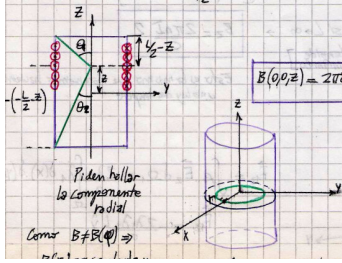 Z
θ₁
L/2-Z
Z
Y
-(-L/2-Z)
θ₂
B(0,0,Z) = 2π
Z
Piden hallar
la componente
radial
r
Y
X
Como B≠B(φ) ⇒